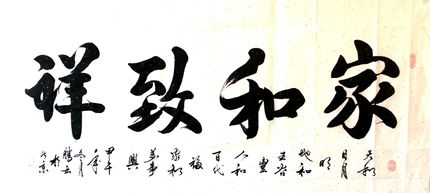 家和致祥
天和
日月
明
地和
五谷
豐
人和
百代
福
家和
萬事
興
甲午
年
冬月
於
北京